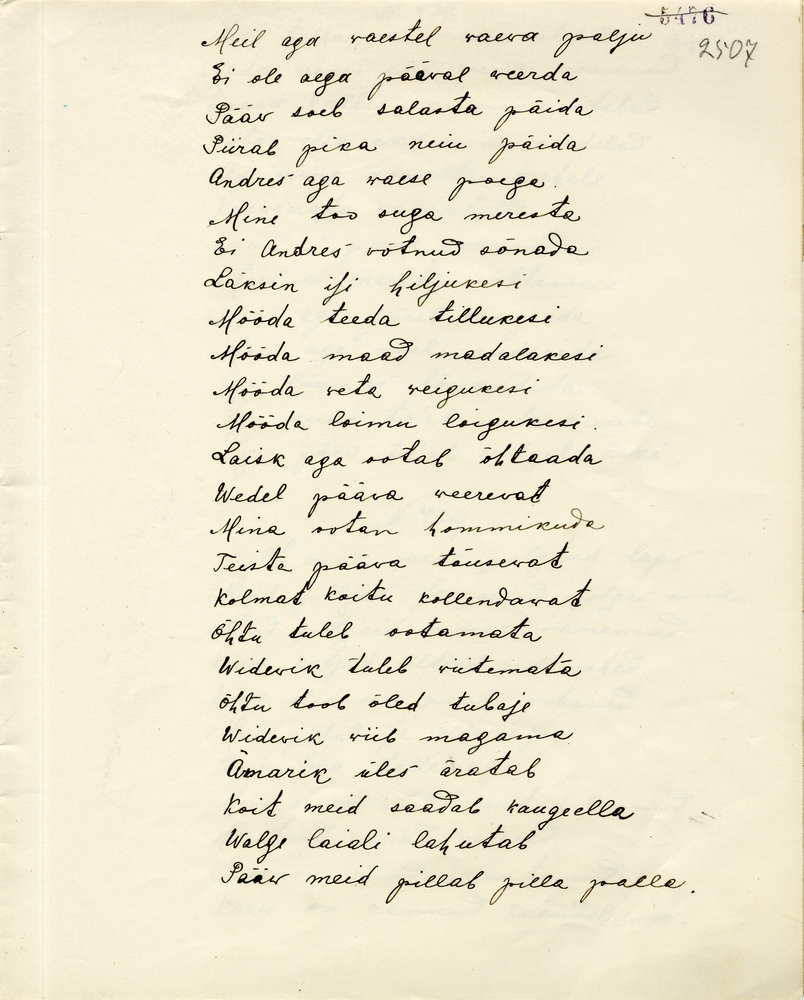 5476
2507
Meil aga waestel waewa palju
Ei ole aega pääwal weerda
Pääw soeb salasta päida
Piirab pika neiu päida
Andres aga waese poega.
Mine too suga meresta
Ei Andres wõtnud sõnada
Läksin isi hiljukesi
Mööda teeda tillukesi
Mööda maad madalakesi
Mööda weta weigukesi
Mööda loimu loigukesi.
Laisk aga ootab õhtaada
Wedel pääwa weerewat
Mina ootan hommikuda
Teista pääwa tõusewat
Kolmat koitu kollendawat
Õhtu tuleb ootamata
Widewik tuleb wiitemata
Õhtu toob õled tubaje
Widewik wiib magama
Ämarik üles äratab
Koit meid saadab kaugeella
Walge laiali lahutab
Pääw meid pillab pilla palla.